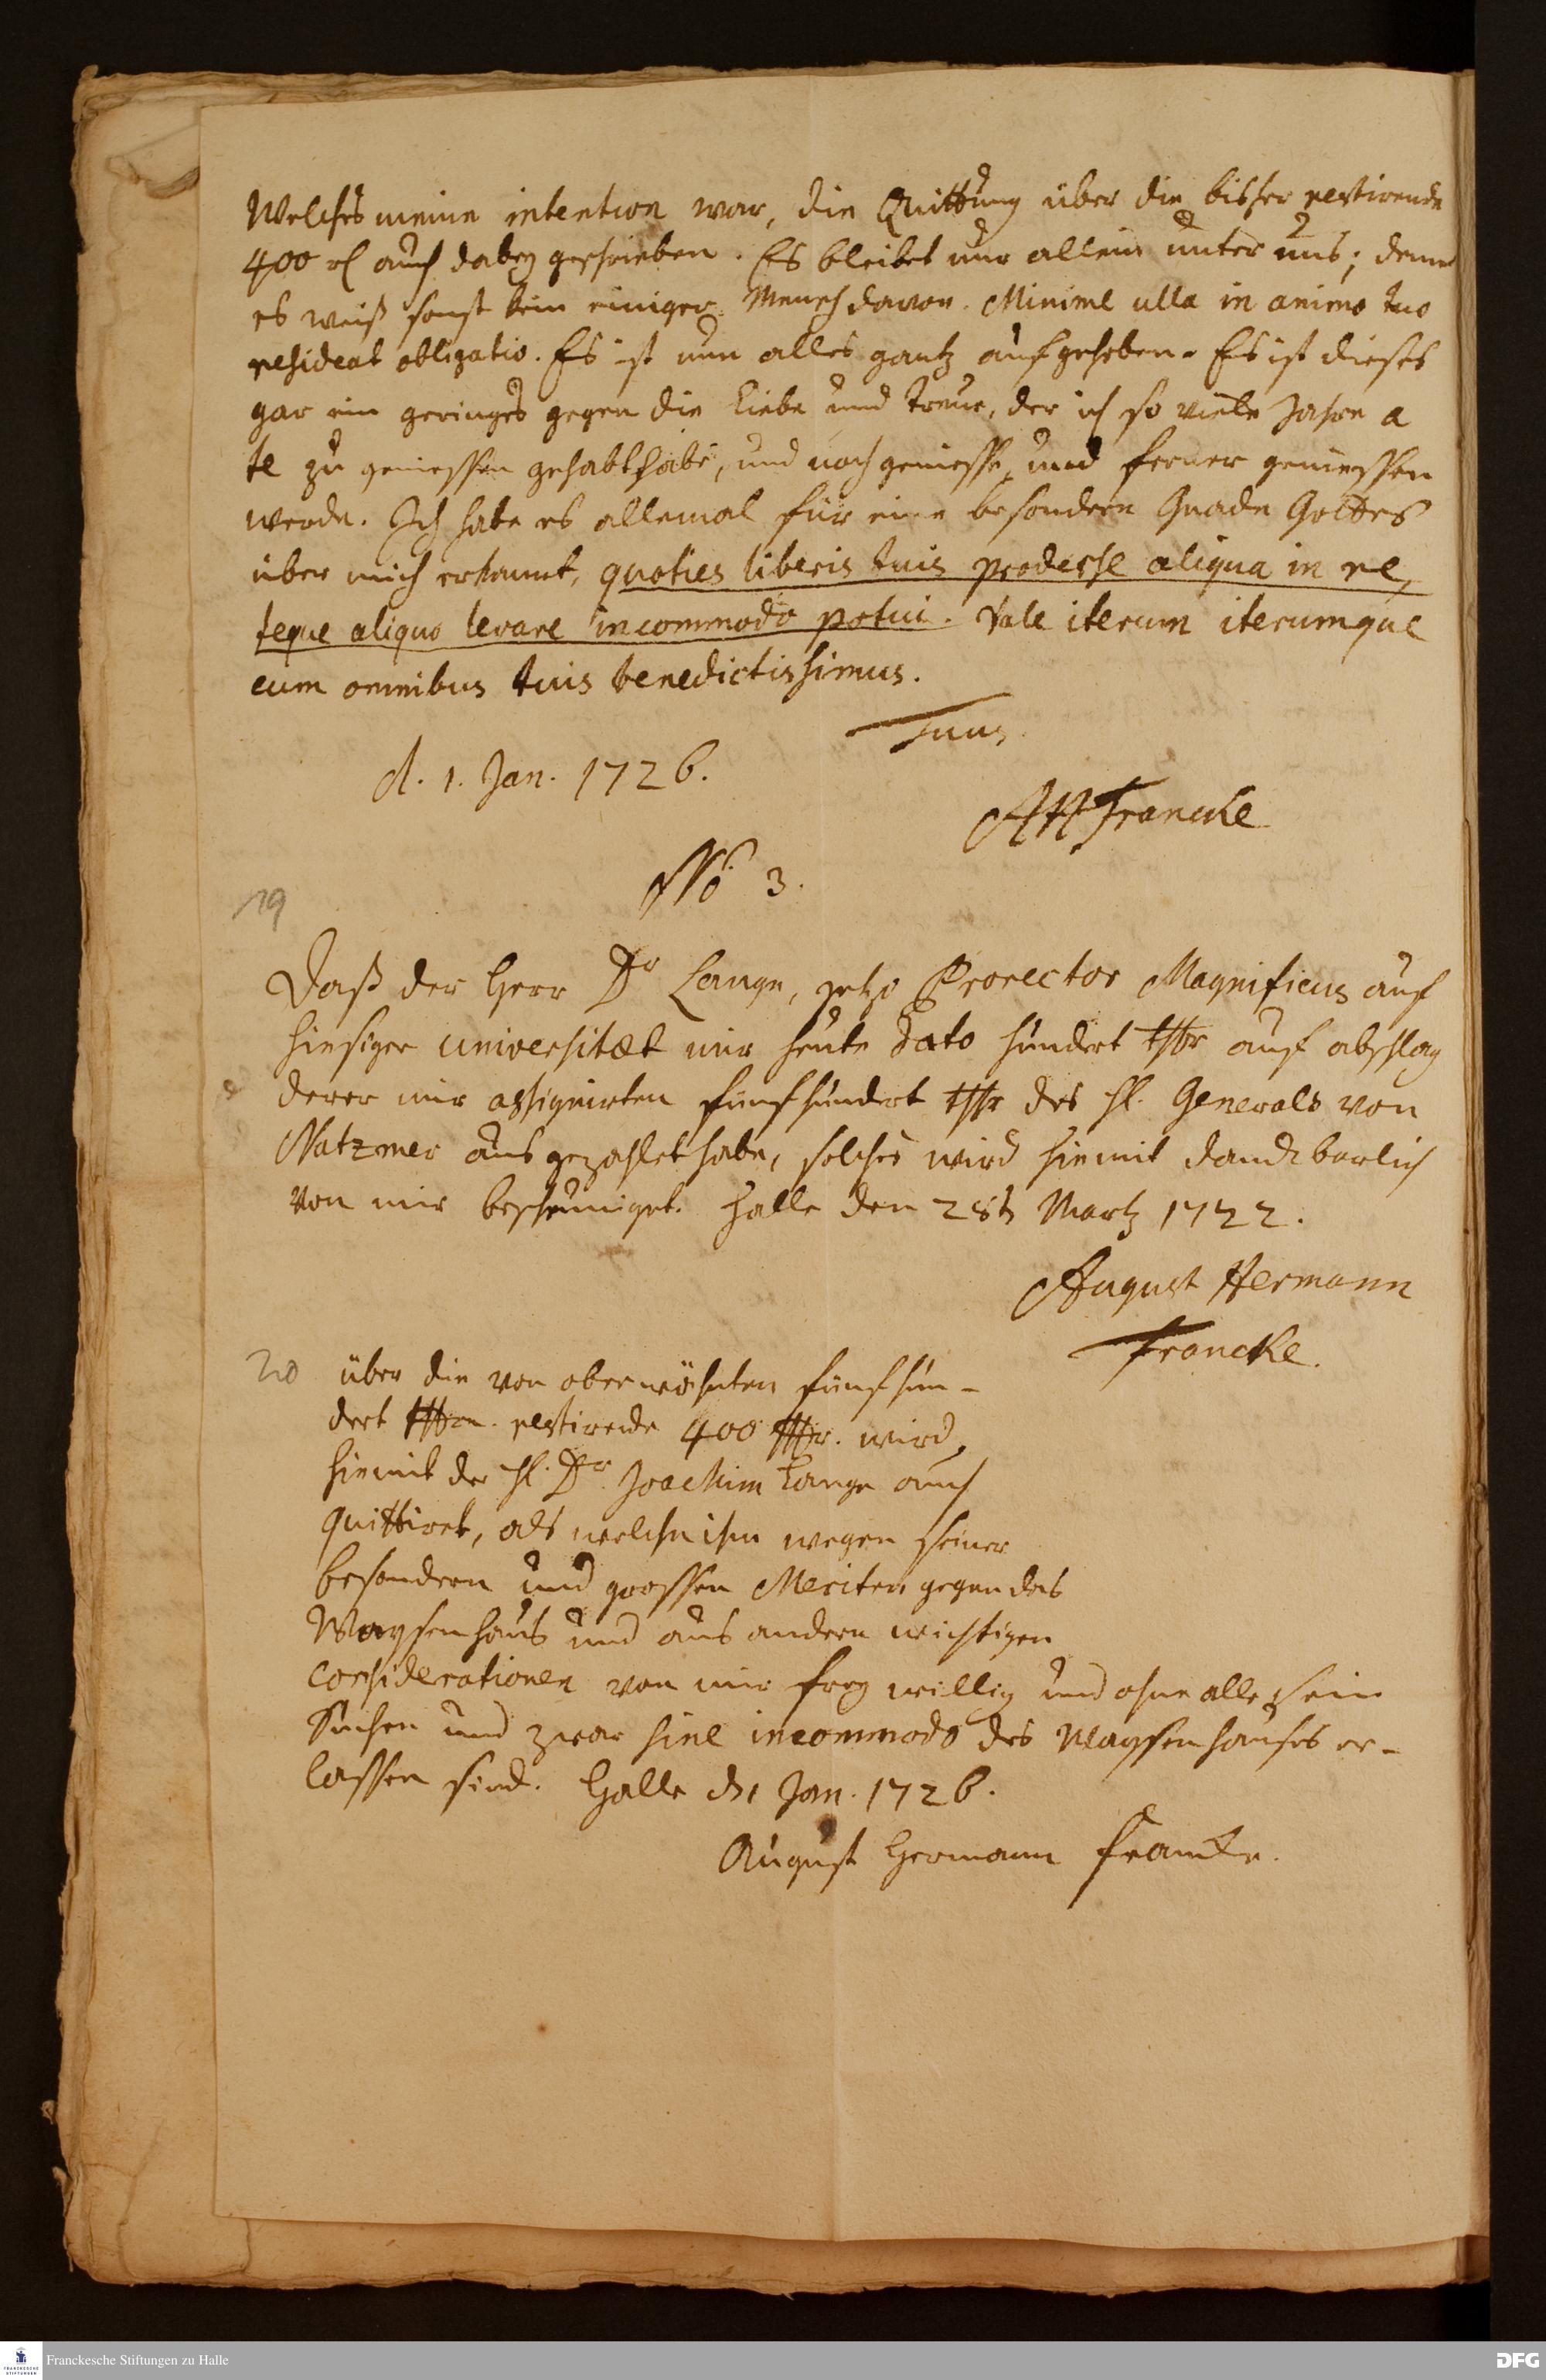 Welches meine intention war, die Quittung über die bißher restirende
400 rl auch dabey geschrieben. Es bleibet nur allein unter uns; denn
es weiß sonst kein einiger Mensch davon. Minime ulla in animo tuo
resideat obligatio. Es ist nun alles gantz aufgehoben. Es ist dieses
gar ein geringes gegen die Liebe und Treue, der ich so viele Jahre a
te zu geniessen gehabt habe, und noch geniesse, und ferner geniessen
werde. Ich habe es allemal für eine besondere Gnade Gottes
über mich erkannt, quoties liberis tuis prodesse aliqua in re,
teque aliquo levare incommodo potui. Vale iterum iterumque
cum omnibus tuis benedictissimus.
Tuus
d. 1. Jan. 1726.
AHFrancke
No 3.
19
Daß der Herr Dr Lange, jetzo Prorector Magnificus auf
hiesiger universitæt mir heute dato hundert thlr auf abschlag
derer mir assignirten fünfhundert thlr des H. Generals von
Natzmer ausgezahlet habe, solches wird hiemit danckbarlich
von mir bescheiniget. Halle den 28t Martz 1722.
August Hermann
Francke.
20
über die von oberwähnten fünfhun-
dert thlrn. restirende 400 thlr. wird
hiemit der H. Dr. Joachim Lange auch
quittiret, als welche ihm wegen seiner
besondern und grossen Meriten gegen das
Waysenhaus und aus andern wichtigen
considerationen von mir freywillig und ohne alle sein
Suchen und zwar sine incommodo des Waysenhauses er-
lassen sind. Halle d 1 Jan. 1726.
August Hermann Francke.
Franckesche Stiftungen zu Halle
FRANCKESCHE
STIFTUNGEN
DFG